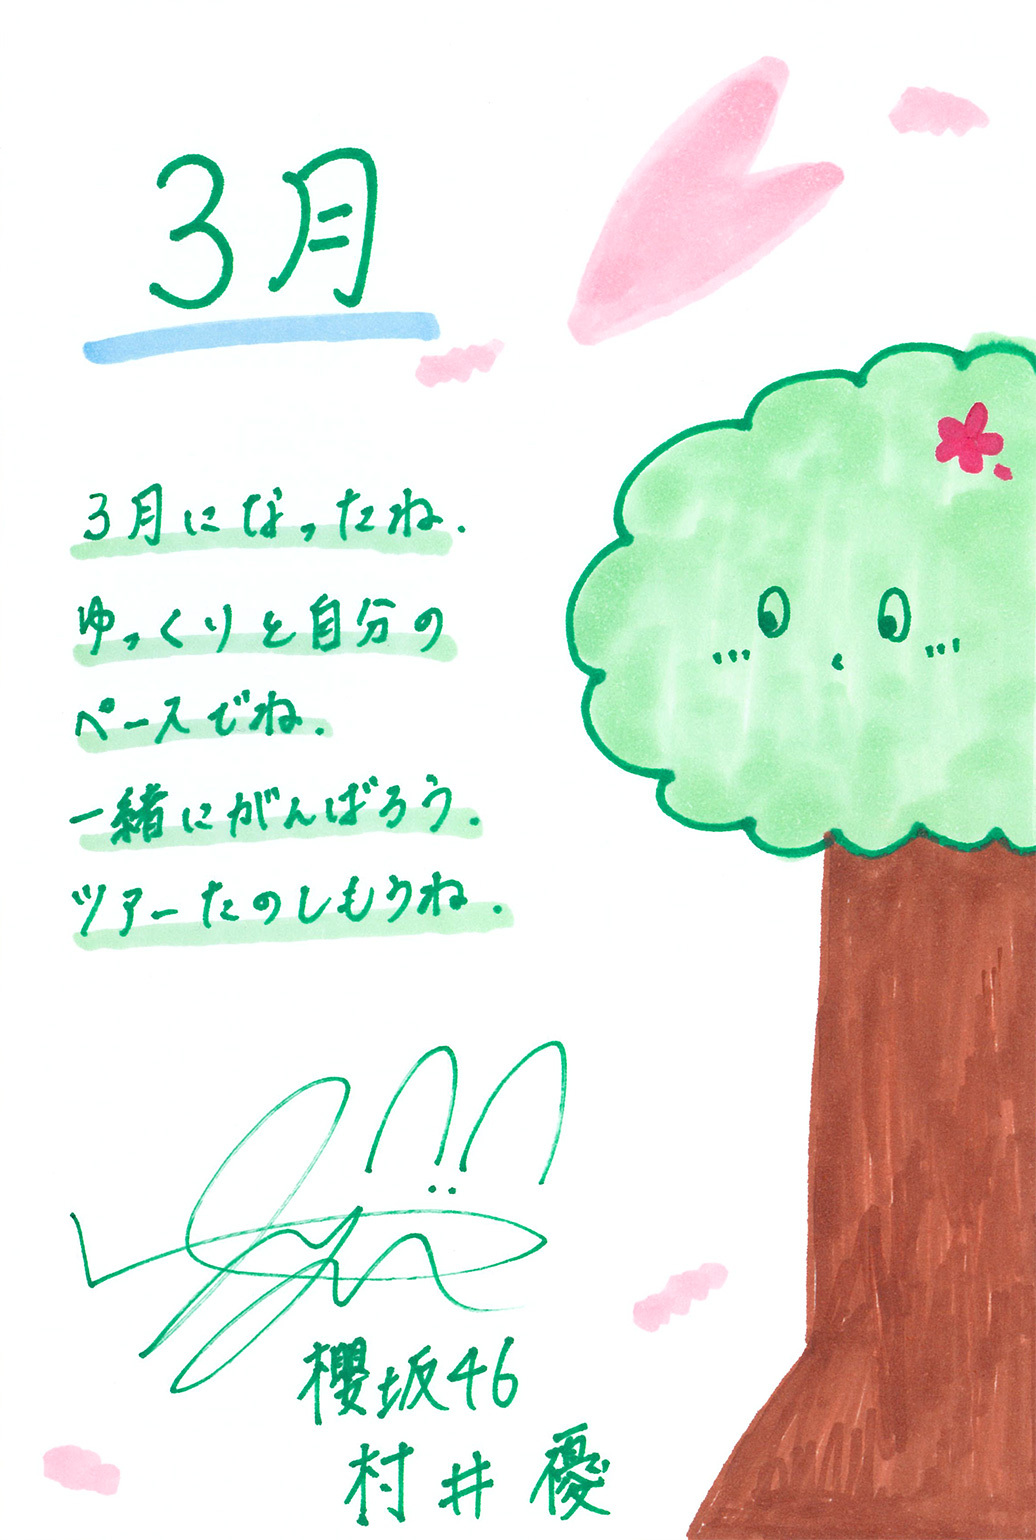 3月
3月になったね.
ゆっくりと自分の
ペースでね.
一緒にがんばろう.
ツアーたのしもうね.
櫻坂46
村井 優